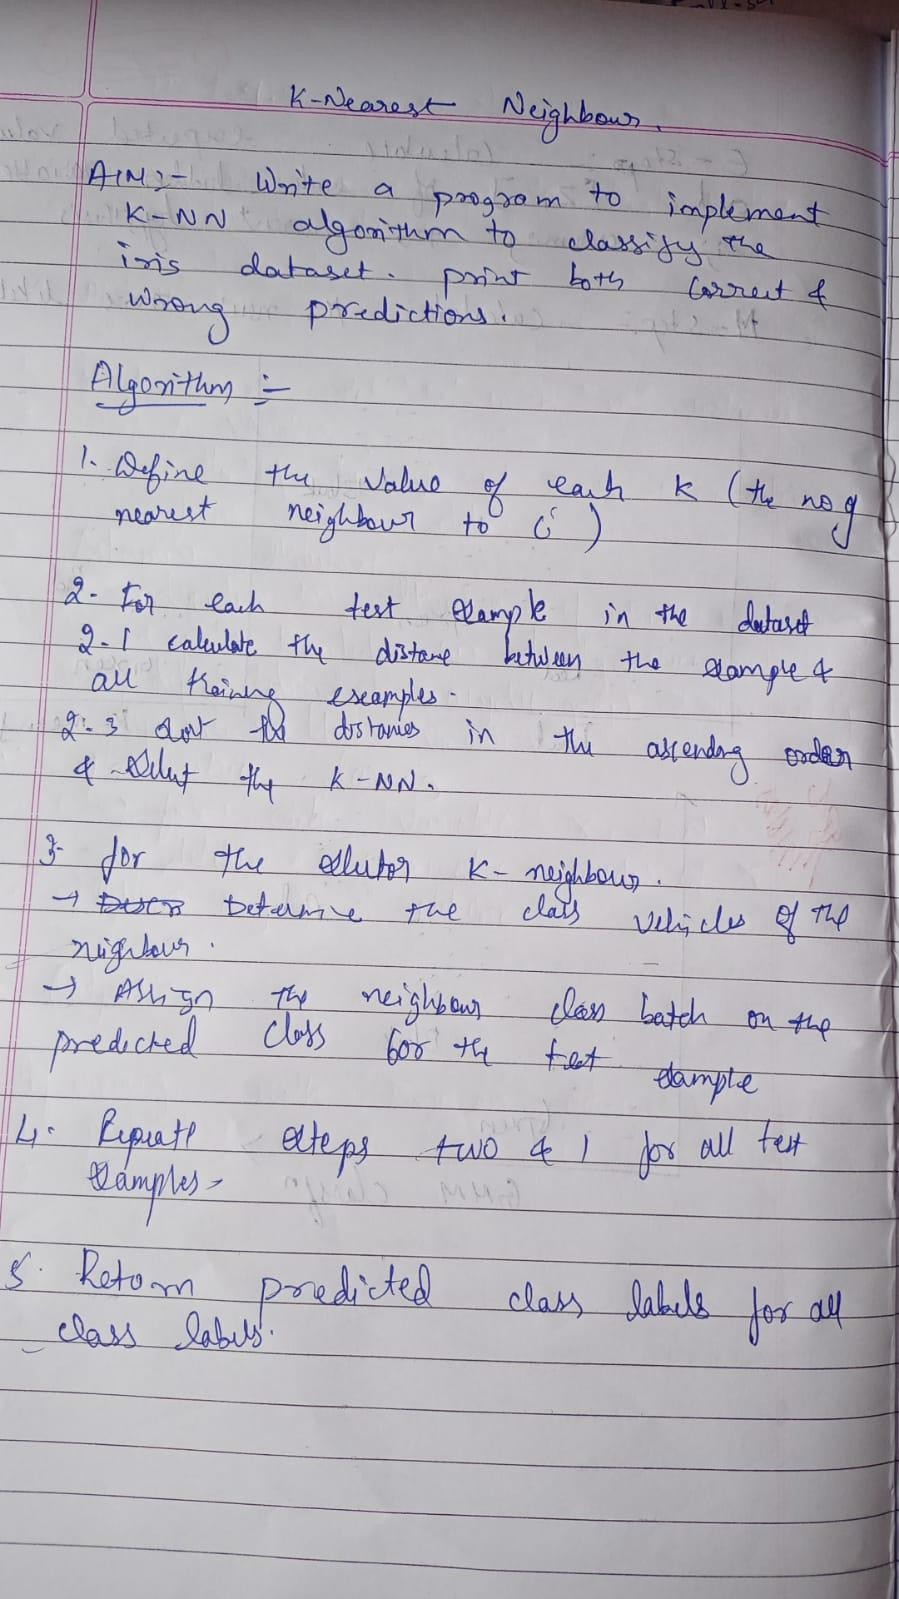 K-Nearest Neighbour.
AIM :- Write a program to implement
K-NN algorithm to classify the
iris dataset. print both correct &
wrong predictions.
Algorithm :-
1. Define the value of each K (the no of
nearest neighbour to i)
2. For each test example in the dataset
2.1 calculate the distane between the example &
all training examples.
2.3 sort the distanies in the ascending order
& select the K-NN.
3. for the K-neighbour.
→ Determine the class of the
neighbour.
→ Assign the neighbour class batch on the
predicted class for the test example
4. Repeate steps two & 1 for all test
examples
5. Retorn predicted class labels for all
class labels.